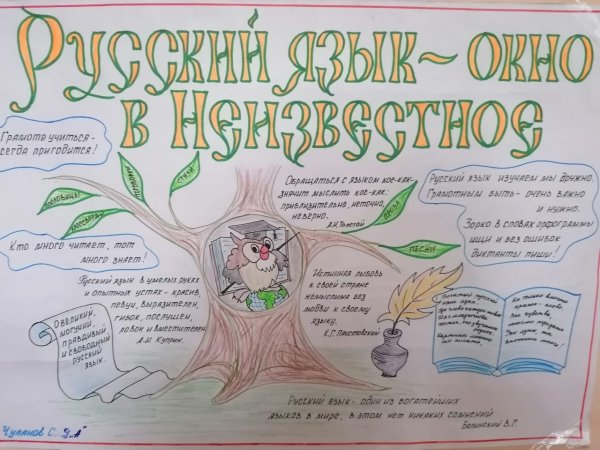 Русский язык - окно
в Неизвестное
Грамоте учиться -
всегда пригодится!
Кто много читает, тот
много знает!
пословицы
кроссворды
поговорки
стихи
проза
песни
Обращаться с языком кое-как -
значит мыслить кое-как:
приблизительно, неточно,
неверно.
А.Н. Толстой
Русский язык изучаем мы дружно.
Грамотным быть - очень важно
и нужно.
Зорко в словах орфограммы
ищи и без ошибок
диктанты пиши!
Русский язык в умелых руках
и опытных устах - красив,
певуч, выразителен,
гибок, послушен,
ловок и вместителен.
А.И. Куприн.
Истинная любовь
к своей стране
немыслима без
любви к своему
языку.
К.Г. Паустовский
О великий,
могучий,
правдивый
и свободный
русский
язык.
русский
наш язык,
Не только
Русский язык - один из богатейших
языков в мире, в этом нет никаких сомнений
Белинский В.Г.
Чуланов С.